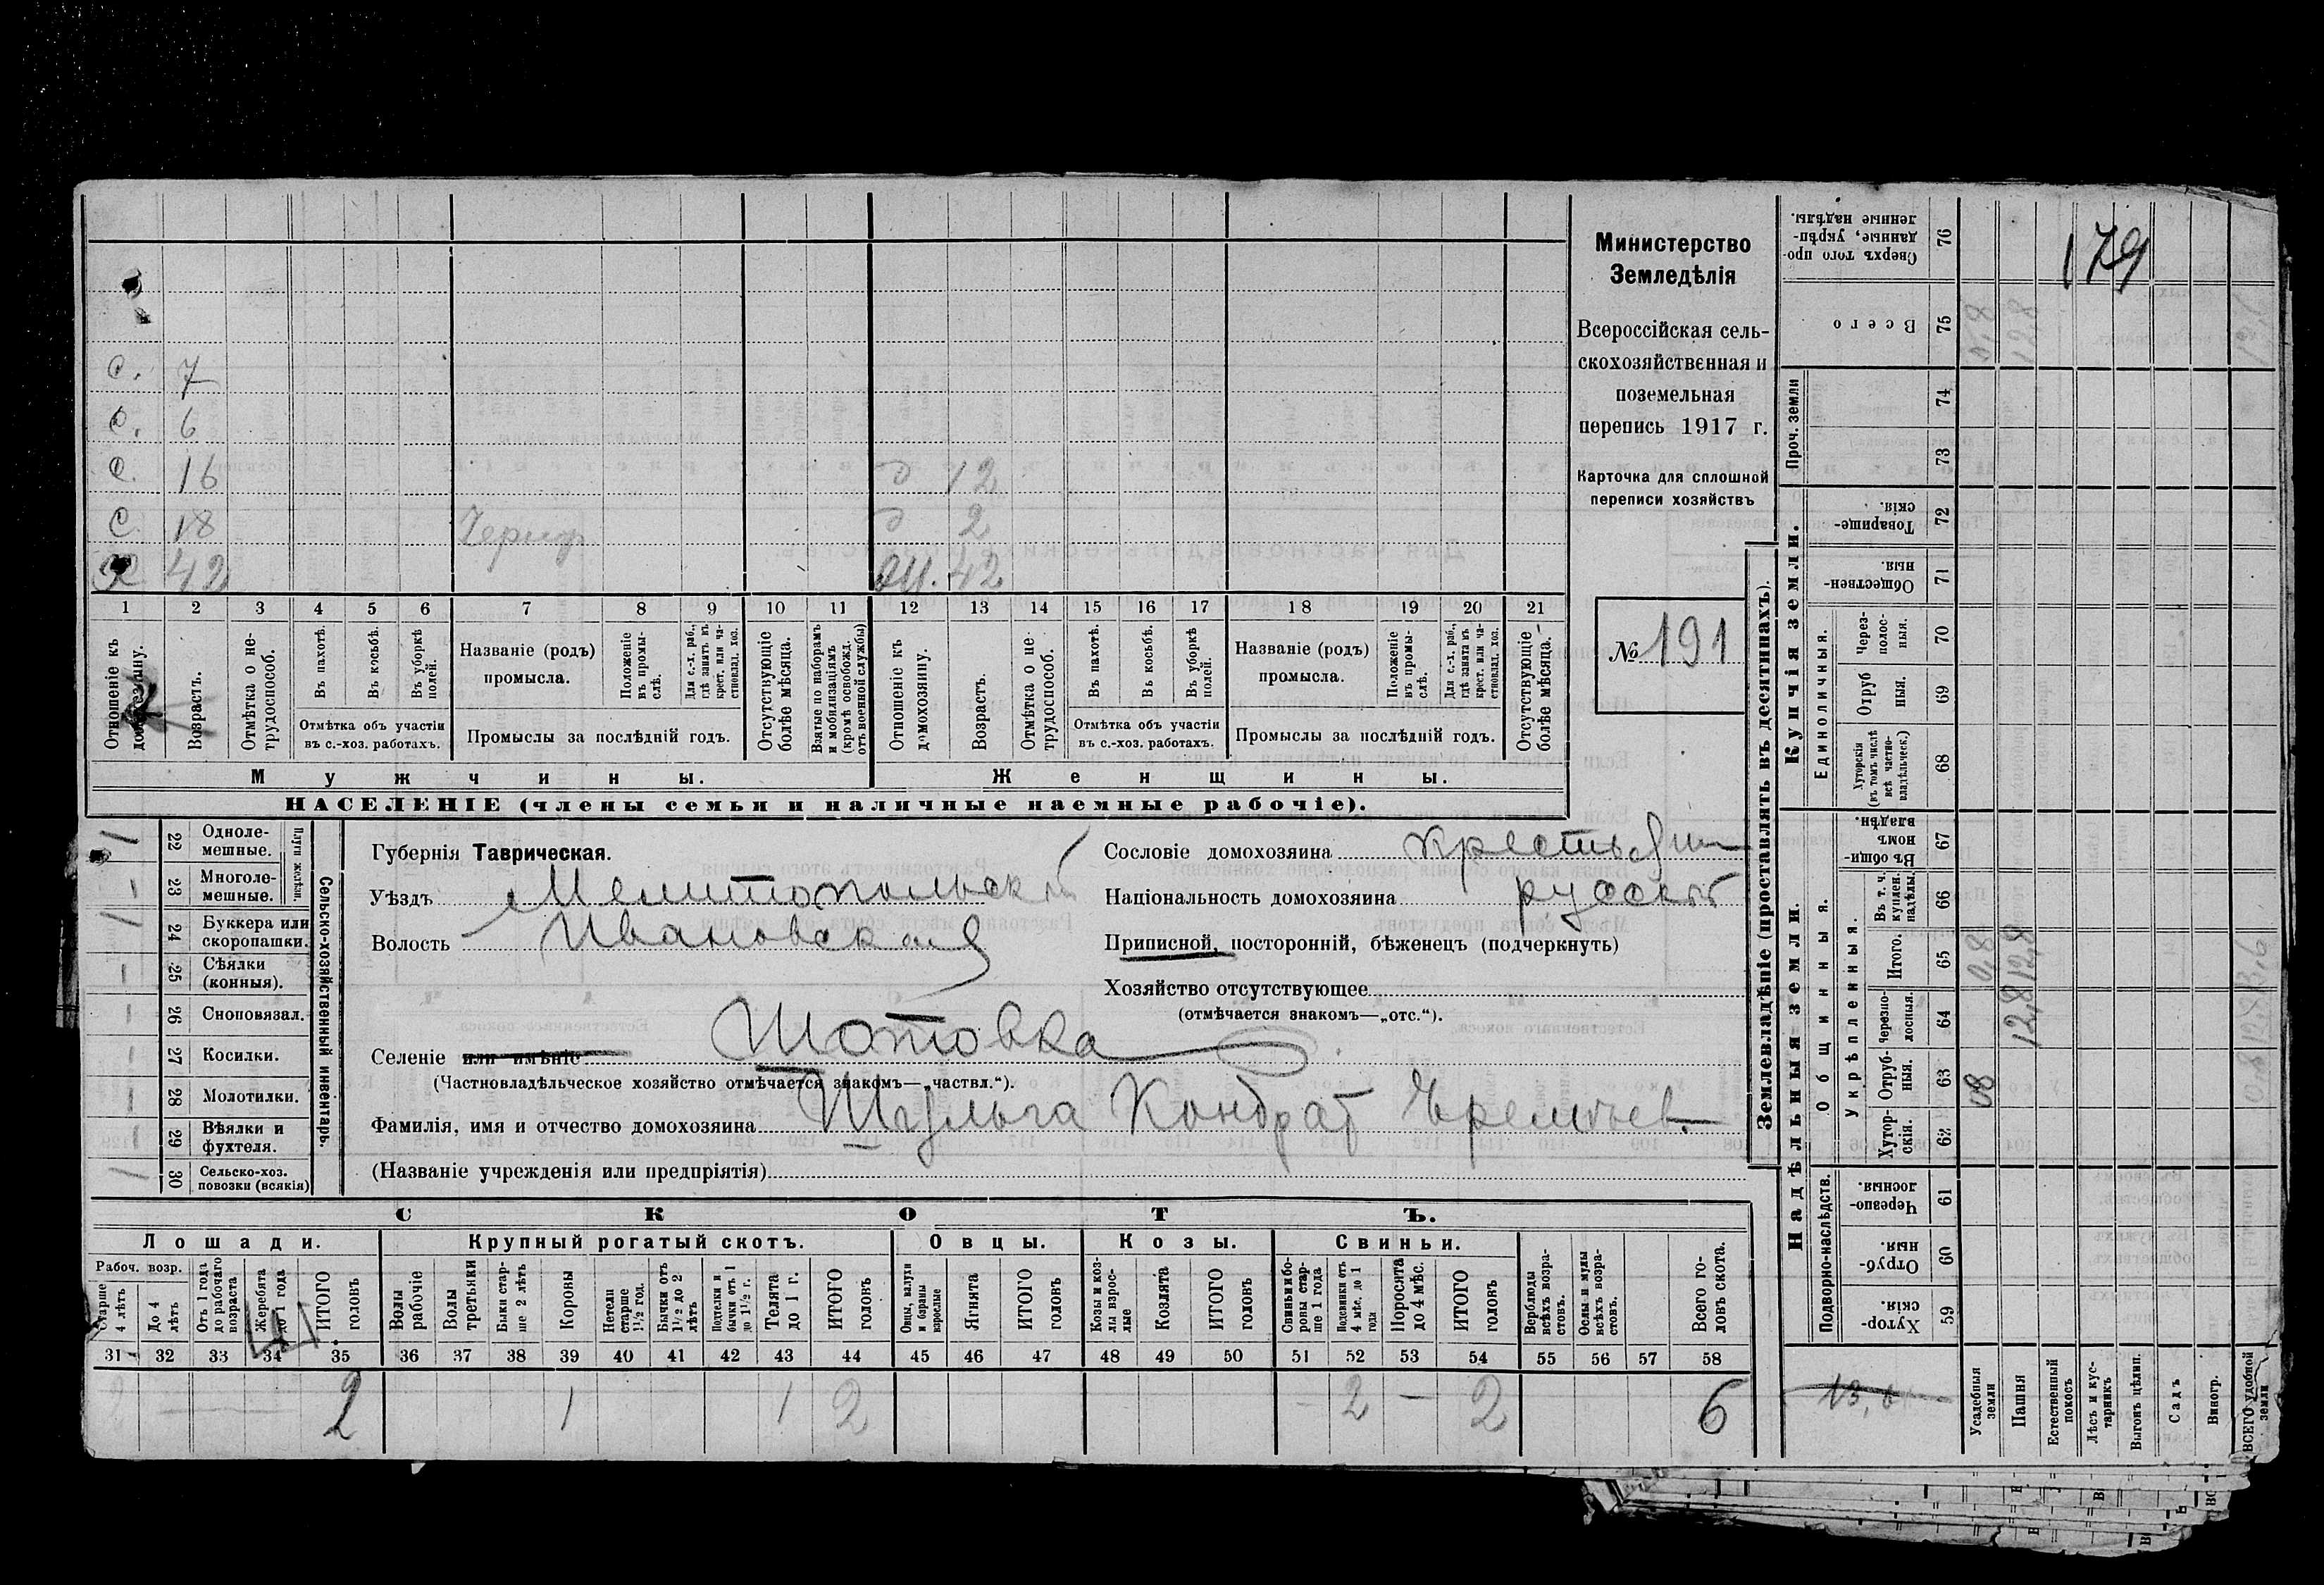 С. 7
С. 6
С. 16 д 12
С 18 д 2
Х 42 Ж. 42
1 2 3 4 5 6 7 8 9 10 11 12 13 14 15 16 17 18 19 20 21
Отношеніе къ домохозяину.
Возрастъ.
Отмѣтка о нетрудоспособ.
Въ пахотѣ.
Въ косьбѣ.
Въ уборкѣ полей.
Отмѣтка объ участіи въ с.-хоз. работахъ.
Названіе (родъ) промысла.
Положеніе въ промыслѣ.
Для с.-х. раб., гдѣ занятъ въ крест. или частновлад. хоз.
Промыслы за послѣдній годъ.
Отсутствующіе болѣе мѣсяца.
Взятые по наборамъ и мобилизаціямъ (кромѣ освобожд. отъ военной службы)
Отношеніе къ домохозяину.
Возрастъ.
Отмѣтка о нетрудоспособ.
Въ пахотѣ.
Въ косьбѣ.
Въ уборкѣ полей.
Отмѣтка объ участіи въ с.-хоз. работахъ.
Названіе (родъ) промысла.
Положеніе въ промыслѣ.
Для с.-х. раб., гдѣ занята въ крест. или частновлад. хоз.
Промыслы за послѣдній годъ.
Отсутствующіе болѣе мѣсяца.
Мужчины. Женщины.
НАСЕЛЕНІЕ (члены семьи и наличные наемные рабочіе).
Министерство
Земледѣлія
Всероссійская сель-
скохозяйственная и
поземельная
перепись 1917 г.
Карточка для сплошной
переписи хозяйствъ
№ 191
1 22 Одноле-мешные.
– 23 Многоле-мешные.
Плуги желѣзн.
1 24 Буккера или скоропашки.
– 25 Сѣялки (конныя).
– 26 Сноповязал.
– 27 Косилки.
– 28 Молотилки.
– 29 Вѣялки и фухтеля.
1 30 Сельско-хоз. повозки (всякія)
Сельско-хозяйственный инвентарь.
Губернія Таврическая.
Уѣздъ Мелитопольский
Волость Ивановская
Селеніе или имѣніе Шотовка
(Частновладѣльческое хозяйство отмѣчается знакомъ—„частвл.“).
Фамилія, имя и отчество домохозяина Шульга Кондрат Еремеев.
(Названіе учрежденія или предпріятія)
Сословіе домохозяина крестьянин
Національность домохозяина русский
Приписной, посторонній, бѣженецъ (подчеркнуть)
Хозяйство отсутствующее
(отмѣчается знакомъ—„отс.“).
СКОТЪ.
Лошади. Крупный рогатый скотъ. Овцы. Козы. Свиньи.
Рабоч. возр.
Старше 4 лѣтъ
До 4 лѣтъ
Отъ 1 года до рабочаго возраста
Жеребята до 1 года
ИТОГО головъ
Волы рабочіе
Волы третьяки
Быки старше 2 лѣтъ
Коровы
Нетели старше 1½ год.
Бычки отъ 1½ до 2 лѣтъ
Подтелки и бычки отъ 1 до 1½ г.
Телята до 1 г.
ИТОГО головъ
Овцы, валухи и бараны взрослые
Ягнята
ИТОГО головъ
Козы и козлы взрослые
Козлята
ИТОГО головъ
Свиньи и боровы старше 1 года
Подсвинки отъ 4 мѣс. до 1 года
Поросята до 4 мѣс.
ИТОГО головъ
Верблюды всѣхъ возрастовъ.
Ослы и мулы всѣхъ возрастовъ.
Всего головъ скота.
31 32 33 34 35 36 37 38 39 40 41 42 43 44 45 46 47 48 49 50 51 52 53 54 55 56 57 58
2 – – 2 1 1 2 – 2 – 2 6
Землевладѣніе (проставлять въ десятинахъ).
Купчія земли.
Надѣльныя земли.
Сверхъ того проданные, укрѣпленные надѣлы. 76
179
Всего 75
0,8 12,8
Проч. земли
74
73
Товарищескія. 72
Общественныя. 71
Единоличныя.
Черезполосныя. 70
Отрубныя. 69
Хуторскія (въ томъ числѣ всѣ частновладѣльческ.) 68
Общинныя.
Въ общинномъ владѣн. 67
Укрѣпленныя.
Въ т. ч. куплен. надѣлы. 66
Итого. 65
0,8 12,8
Черезполосныя. 64
12,8
Отрубныя. 63
08
Хуторскія. 62
Подворно-наслѣдств.
Черезполосныя. 61
Отрубныя. 60
Хуторскія. 59
13,6
Усадебныя земли
Пашня
Естественный покосъ
Лѣсъ и кустарникъ
Выгонъ цѣлин.
Садъ
Виногр.
ВСЕГО удобной земли